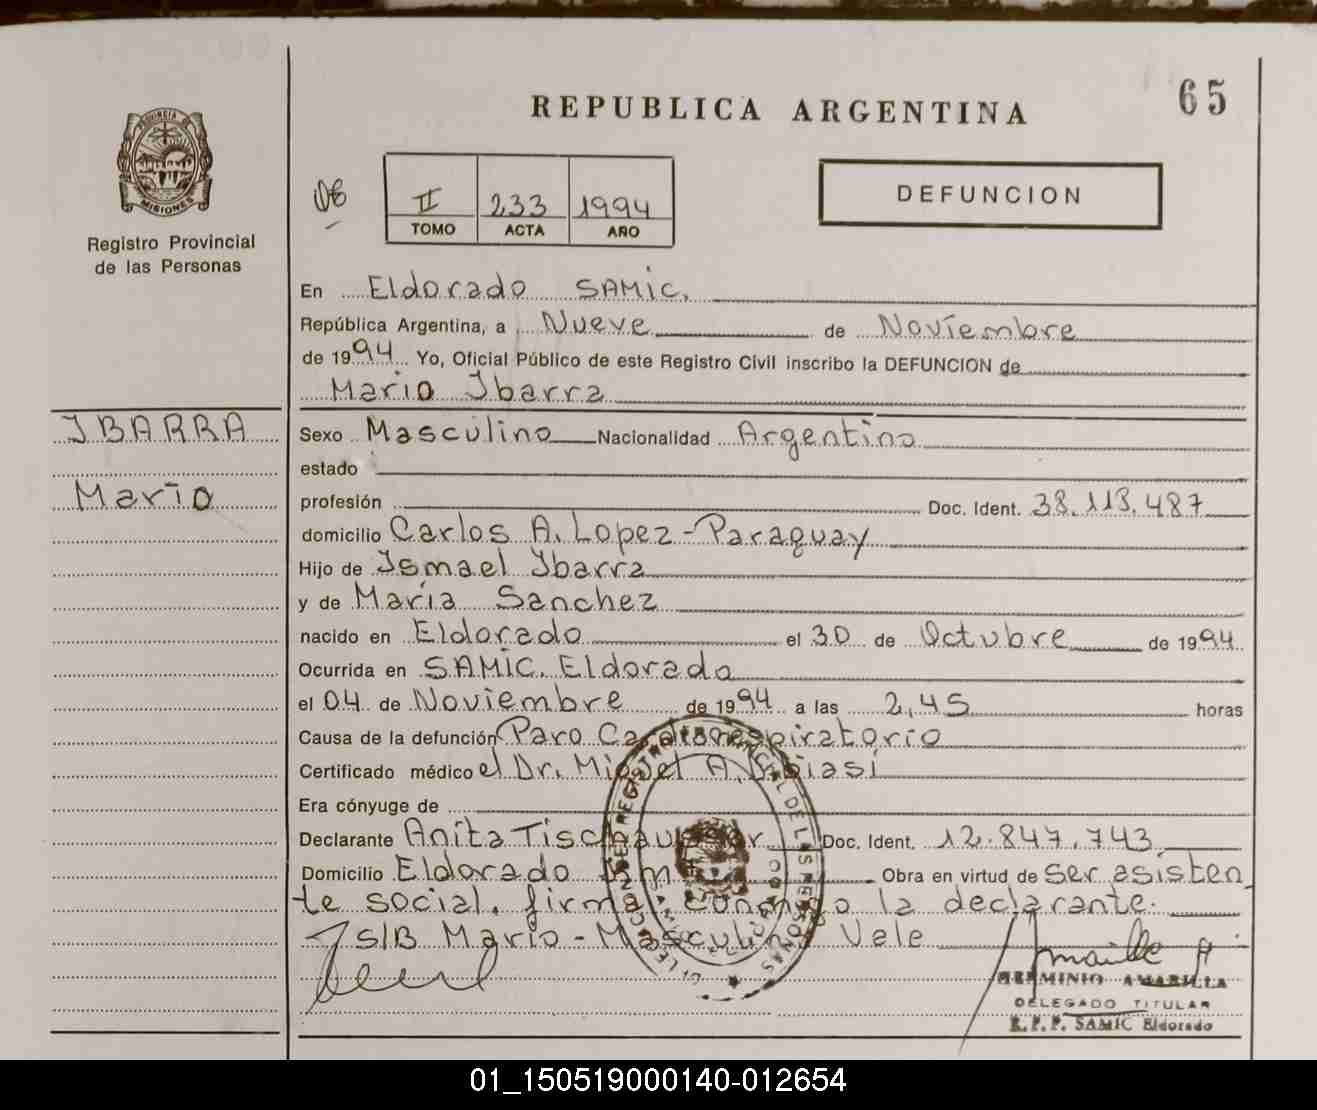 65
REPUBLICA ARGENTINA
PROVINCIA DE
MISIONES
Registro Provincial
de las Personas
II 233 1994
TOMO ACTA AÑO
DEFUNCION
En Eldorado SAMIC.
República Argentina, a Nueve de Noviembre
de 1994 Yo, Oficial Público de este Registro Civil inscribo la DEFUNCION de
Mario Ibarra
IBARRA
Mario
Sexo Masculino Nacionalidad Argentino
estado
profesión Doc. Ident. 38.113.487
domicilio Carlos A. Lopez - Paraguay
Hijo de Ismael Ibarra
y de María Sanchez
nacido en Eldorado el 30 de Octubre de 1994
Ocurrida en SAMIC. Eldorado
el 04 de Noviembre de 1994 a las 2,45 horas
Causa de la defunción Paro Cardiorespiratorio
Certificado médico el Dr. Miguel A. Dibiasi
Era cónyuge de
Declarante Anita Doc. Ident. 12.847.743
Domicilio Eldorado Obra en virtud de ser asisten
te social. firma conmigo la declarante.
S/B Mario - Masculino Vale
HERMINIO AMARILLA
DELEGADO TITULAR
R.P.P. SAMIC Eldorado
01_150519000140-012654